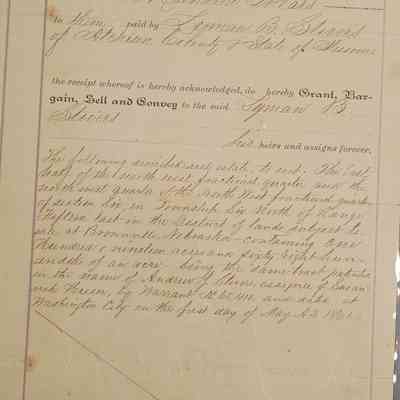 in them paid by Lyman B. Stivers
of Atchison County & State of Missouri
the receipt whereof is hereby acknowledged, do hereby Grant, Bar-
gain, Sell and Convey to the said Lyman B
Stivers
his heirs and assigns forever,
The following described real estate, to wit. The East
half of the north west fractional quarter and the
north west quarter of the North West fractional quarter
of section Six in Township Six North of Range
Fifteen East in the District of lands subject to
sale at Brownville Nebraska containing One
Hundred & nineteen acres and sixty eight hun-
dredths of an acre being the same tract patented
in the name of Andrew J. assignee of
by Warrant No and dated at
Washington City on the first day of May A.D. 1861